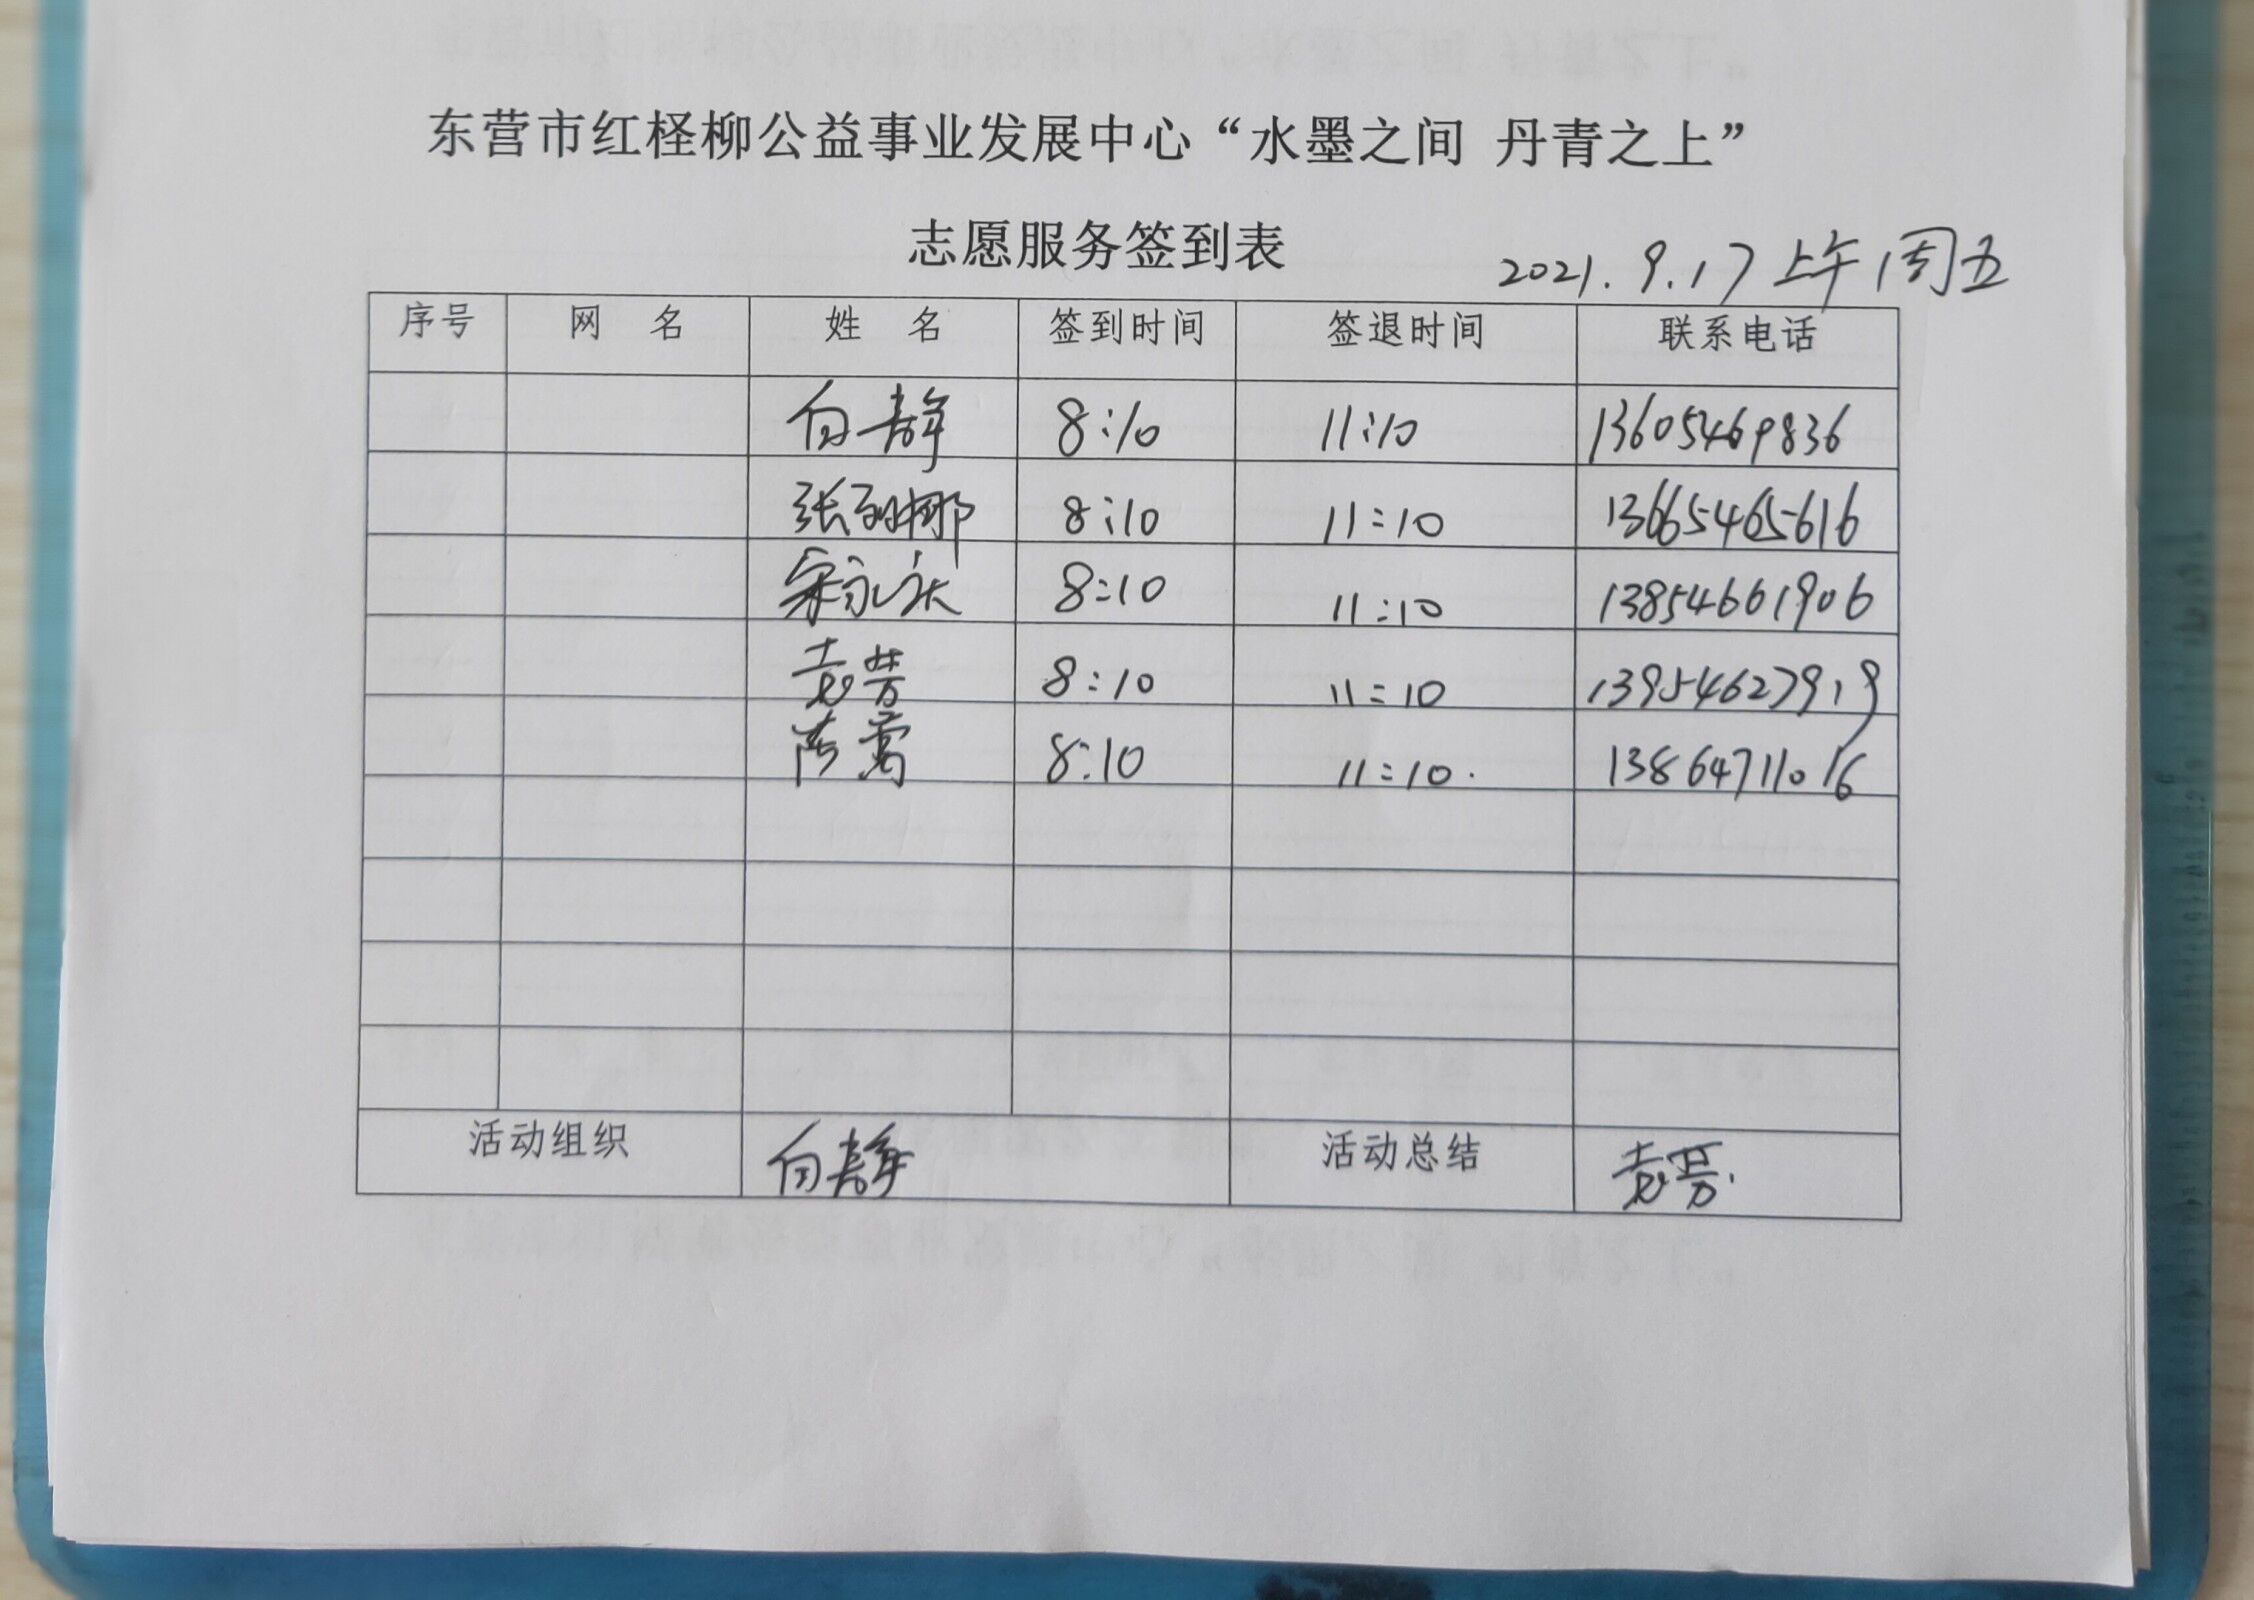 东营市红柽柳公益事业发展中心“水墨之间 丹青之上”
志愿服务签到表
2021.9.17上午 周五
序号 网 名 姓 名 签到时间 签退时间 联系电话
白静 8:10 11:10 13605469836
张 娜 8:10 11:10 13665465616
宋永庆 8:10 11:10 13854661906
袁芳 8:10 11:10 13954627919
陈莺 8:10 11:10. 13864711016
活动组织 白静 活动总结 袁芳.